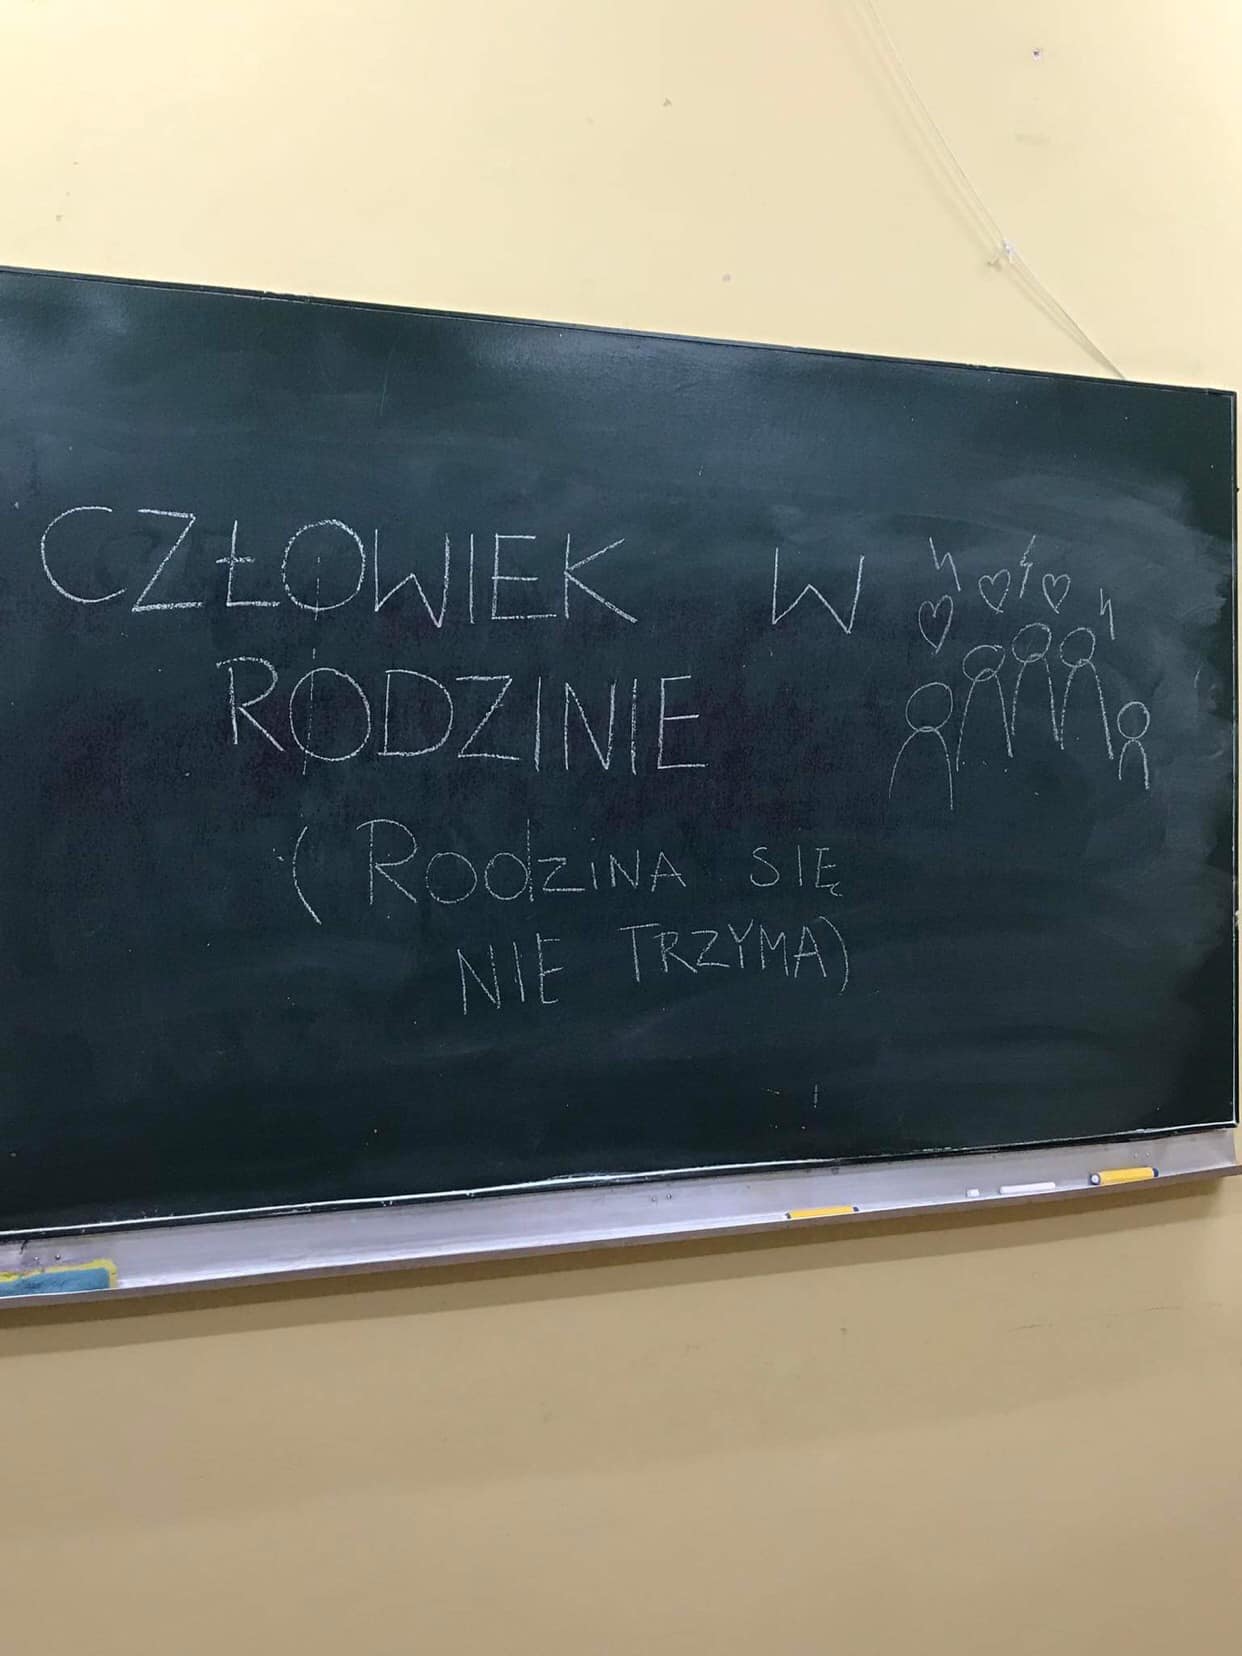 CZŁOWIEK W
RODZINIE
(RODZINA SIĘ
NIE TRZYMA)